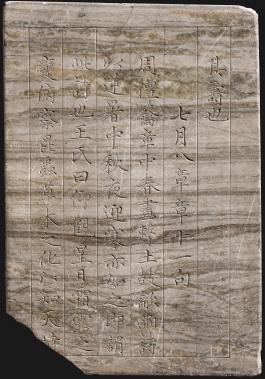 其壽也
七月八章章十一句
周禮籥章中春晝擊土鼓龡豳詩
以逆暑中秋夜迎寒亦如之即謂
此詩也王氏曰仰觀星日霜露之
變俯察昆蟲草木之化以知天時